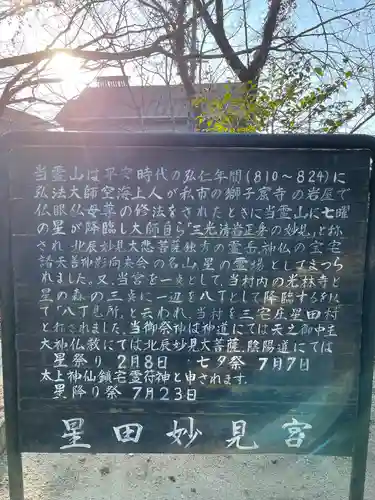 当霊山は平安時代の弘仁年間(810～824)に
弘法大師空海上人が私市の獅子窟寺の岩屋で
仏眼仏母尊の修法をされたときに当霊山に七曜
の星が降臨し大師自ら「三光清岩正身の妙見」と称
され 北辰妙見大悲菩薩独秀の霊岳神仏の宝宅
諸天善神影向来会の名山、星の霊場としてまつら
れました。又、当宮を一点として、当村内の光林寺と
星の森の三点に一辺を八丁として降臨するを以
て「八丁三所」と云われ、当村を三宅庄星田村
と称されました、当御祭神は神道にては天之御中主
大神仏教にては北辰妙見大菩薩、陰陽道にては
星祭り 2月8日 七夕祭 7月7日
太上神仙鎮宅霊符神と申されます。
星降り祭 7月23日
星田妙見宮